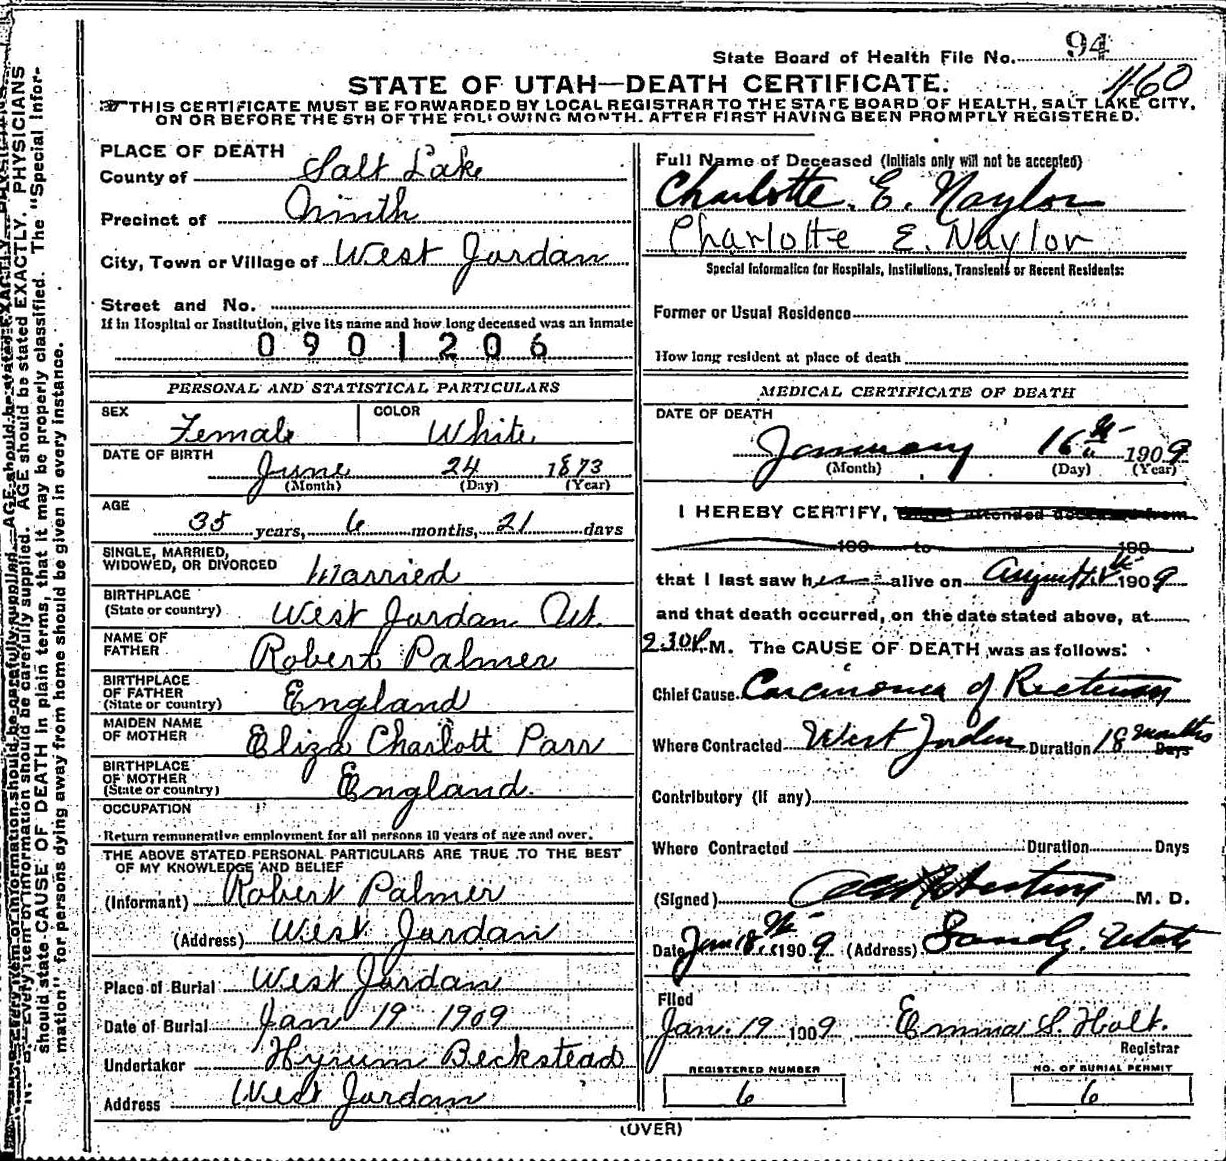 State Board of Health File No. 94
1160
STATE OF UTAH—DEATH CERTIFICATE.
THIS CERTIFICATE MUST BE FORWARDED BY LOCAL REGISTRAR TO THE STATE BOARD OF HEALTH, SALT LAKE CITY,
ON OR BEFORE THE 5TH OF THE FOLLOWING MONTH. AFTER FIRST HAVING BEEN PROMPTLY REGISTERED.
PLACE OF DEATH
County of Salt Lake
Precinct of Ninth
City, Town or Village of West Jordan
Street and No.
If in Hospital or Institution, give its name and how long deceased was an inmate
0901206
PERSONAL AND STATISTICAL PARTICULARS
SEX Female COLOR White
DATE OF BIRTH June 24 1873
(Month) (Day) (Year)
AGE
35 years, 6 months, 21 days
SINGLE, MARRIED,
WIDOWED, OR DIVORCED Married
BIRTHPLACE
(State or country) West Jordan Ut.
NAME OF
FATHER Robert Palmer
BIRTHPLACE
OF FATHER
(State or country) England
MAIDEN NAME
OF MOTHER Eliza Charlott Parr
BIRTHPLACE
OF MOTHER
(State or country) England.
OCCUPATION
Return remunerative employment for all persons 10 years of age and over.
THE ABOVE STATED PERSONAL PARTICULARS ARE TRUE TO THE BEST
OF MY KNOWLEDGE AND BELIEF
(Informant) Robert Palmer
(Address) West Jordan
Place of Burial West Jordan
Date of Burial Jan 19 1909
Undertaker Hyrum Beckstead
Address West Jordan
Full Name of Deceased (Initials only will not be accepted)
Charlotte. E. Naylor
Charlotte E. Naylor
Special Information for Hospitals, Institutions, Transients or Recent Residents:
Former or Usual Residence
How long resident at place of death
MEDICAL CERTIFICATE OF DEATH
DATE OF DEATH
January 16th 1909
(Month) (Day) (Year)
I HEREBY CERTIFY, that I attended deceased from
190 to 190
that I last saw her alive on August 1909
and that death occurred, on the date stated above, at
2.30 P.M. The CAUSE OF DEATH was as follows:
Chief Cause Carcinoma of Rectum
Where Contracted West Jordan Duration 18 months Days
Contributory (if any)
Where Contracted Duration Days
(Signed) M. D.
Date Jan 18th 1909 (Address) Sandy. Utah
Filed
Jan. 19 1909 Emma S. Holt.
Registrar
REGISTERED NUMBER
6
NO. OF BURIAL PERMIT
6
(OVER)
N. B.—Every item of information should be carefully supplied. AGE should be stated EXACTLY. PHYSICIANS
should state CAUSE OF DEATH in plain terms, that it may be properly classified. The "Special Infor-
mation" for persons dying away from home should be given in every instance.